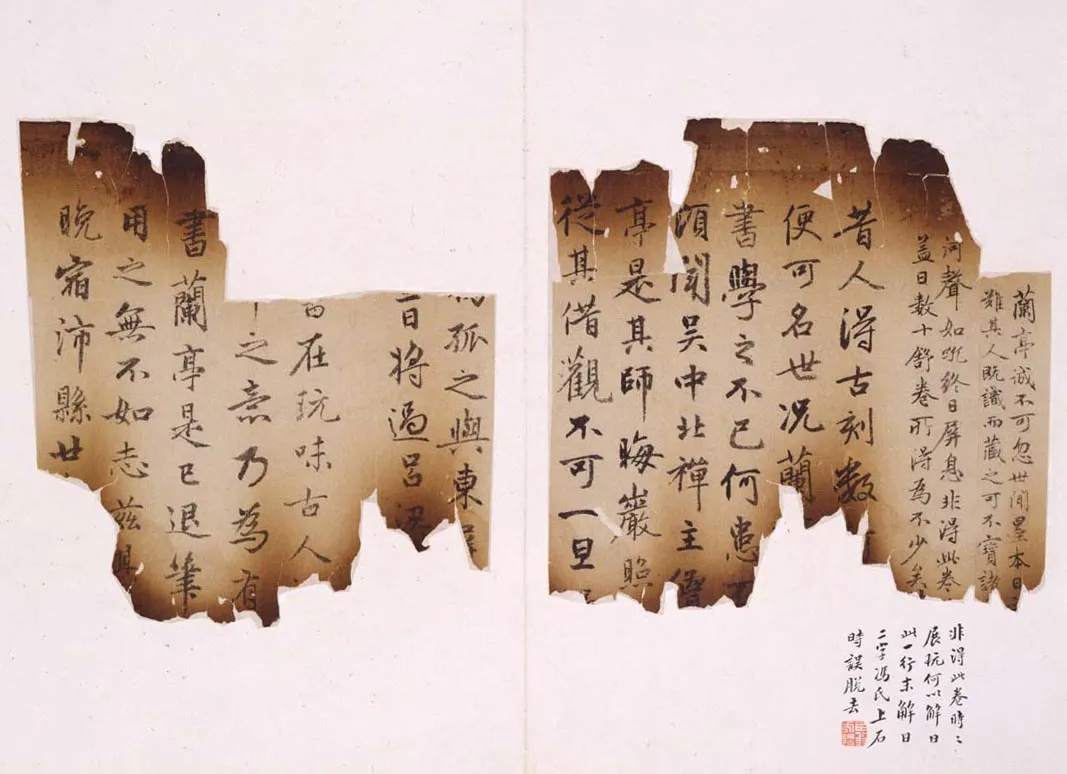 蘭亭誠不可忽世間墨本日
難其人既識而藏之可不寶諸
河聲如吼終日屏息非得此卷
蓋日數十舒卷所得為不少矣
昔人得古刻數
便可名世况蘭
書學之不已何患
頃聞吳中北禪主僧
亭是其師晦巖照
從其借觀不可一旦
孤之與東
日將過呂梁
在玩味古人
之意乃為有
書蘭亭是已退筆
用之無不如志兹
晚宿沛縣廿
非得此卷時〻
展玩何以解日
此一行末解日
二字馮氏上石
時誤脫去